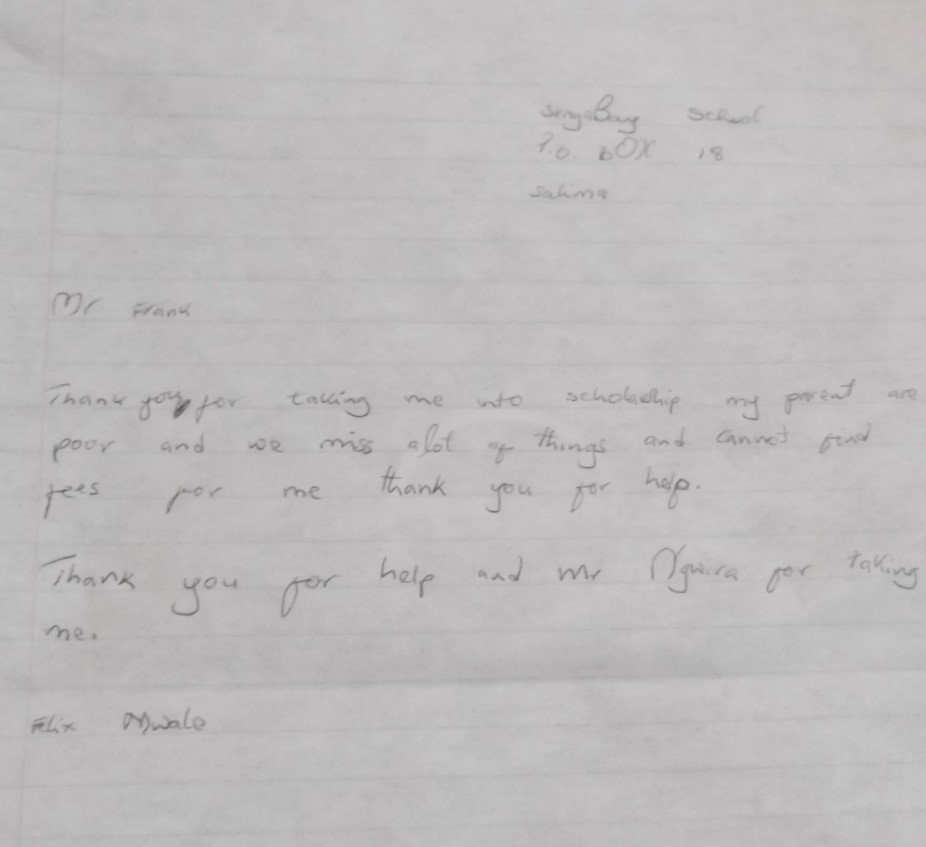 SengaBay School
P.O bOX 18
Salima
Mr Frank
Thank you for taking me into scholaship my parent are
poor and we miss alot of things and cannot find
fees for me thank you for help.
Thank you for help and mr Ngwira for taking
me.
Felix Mwale